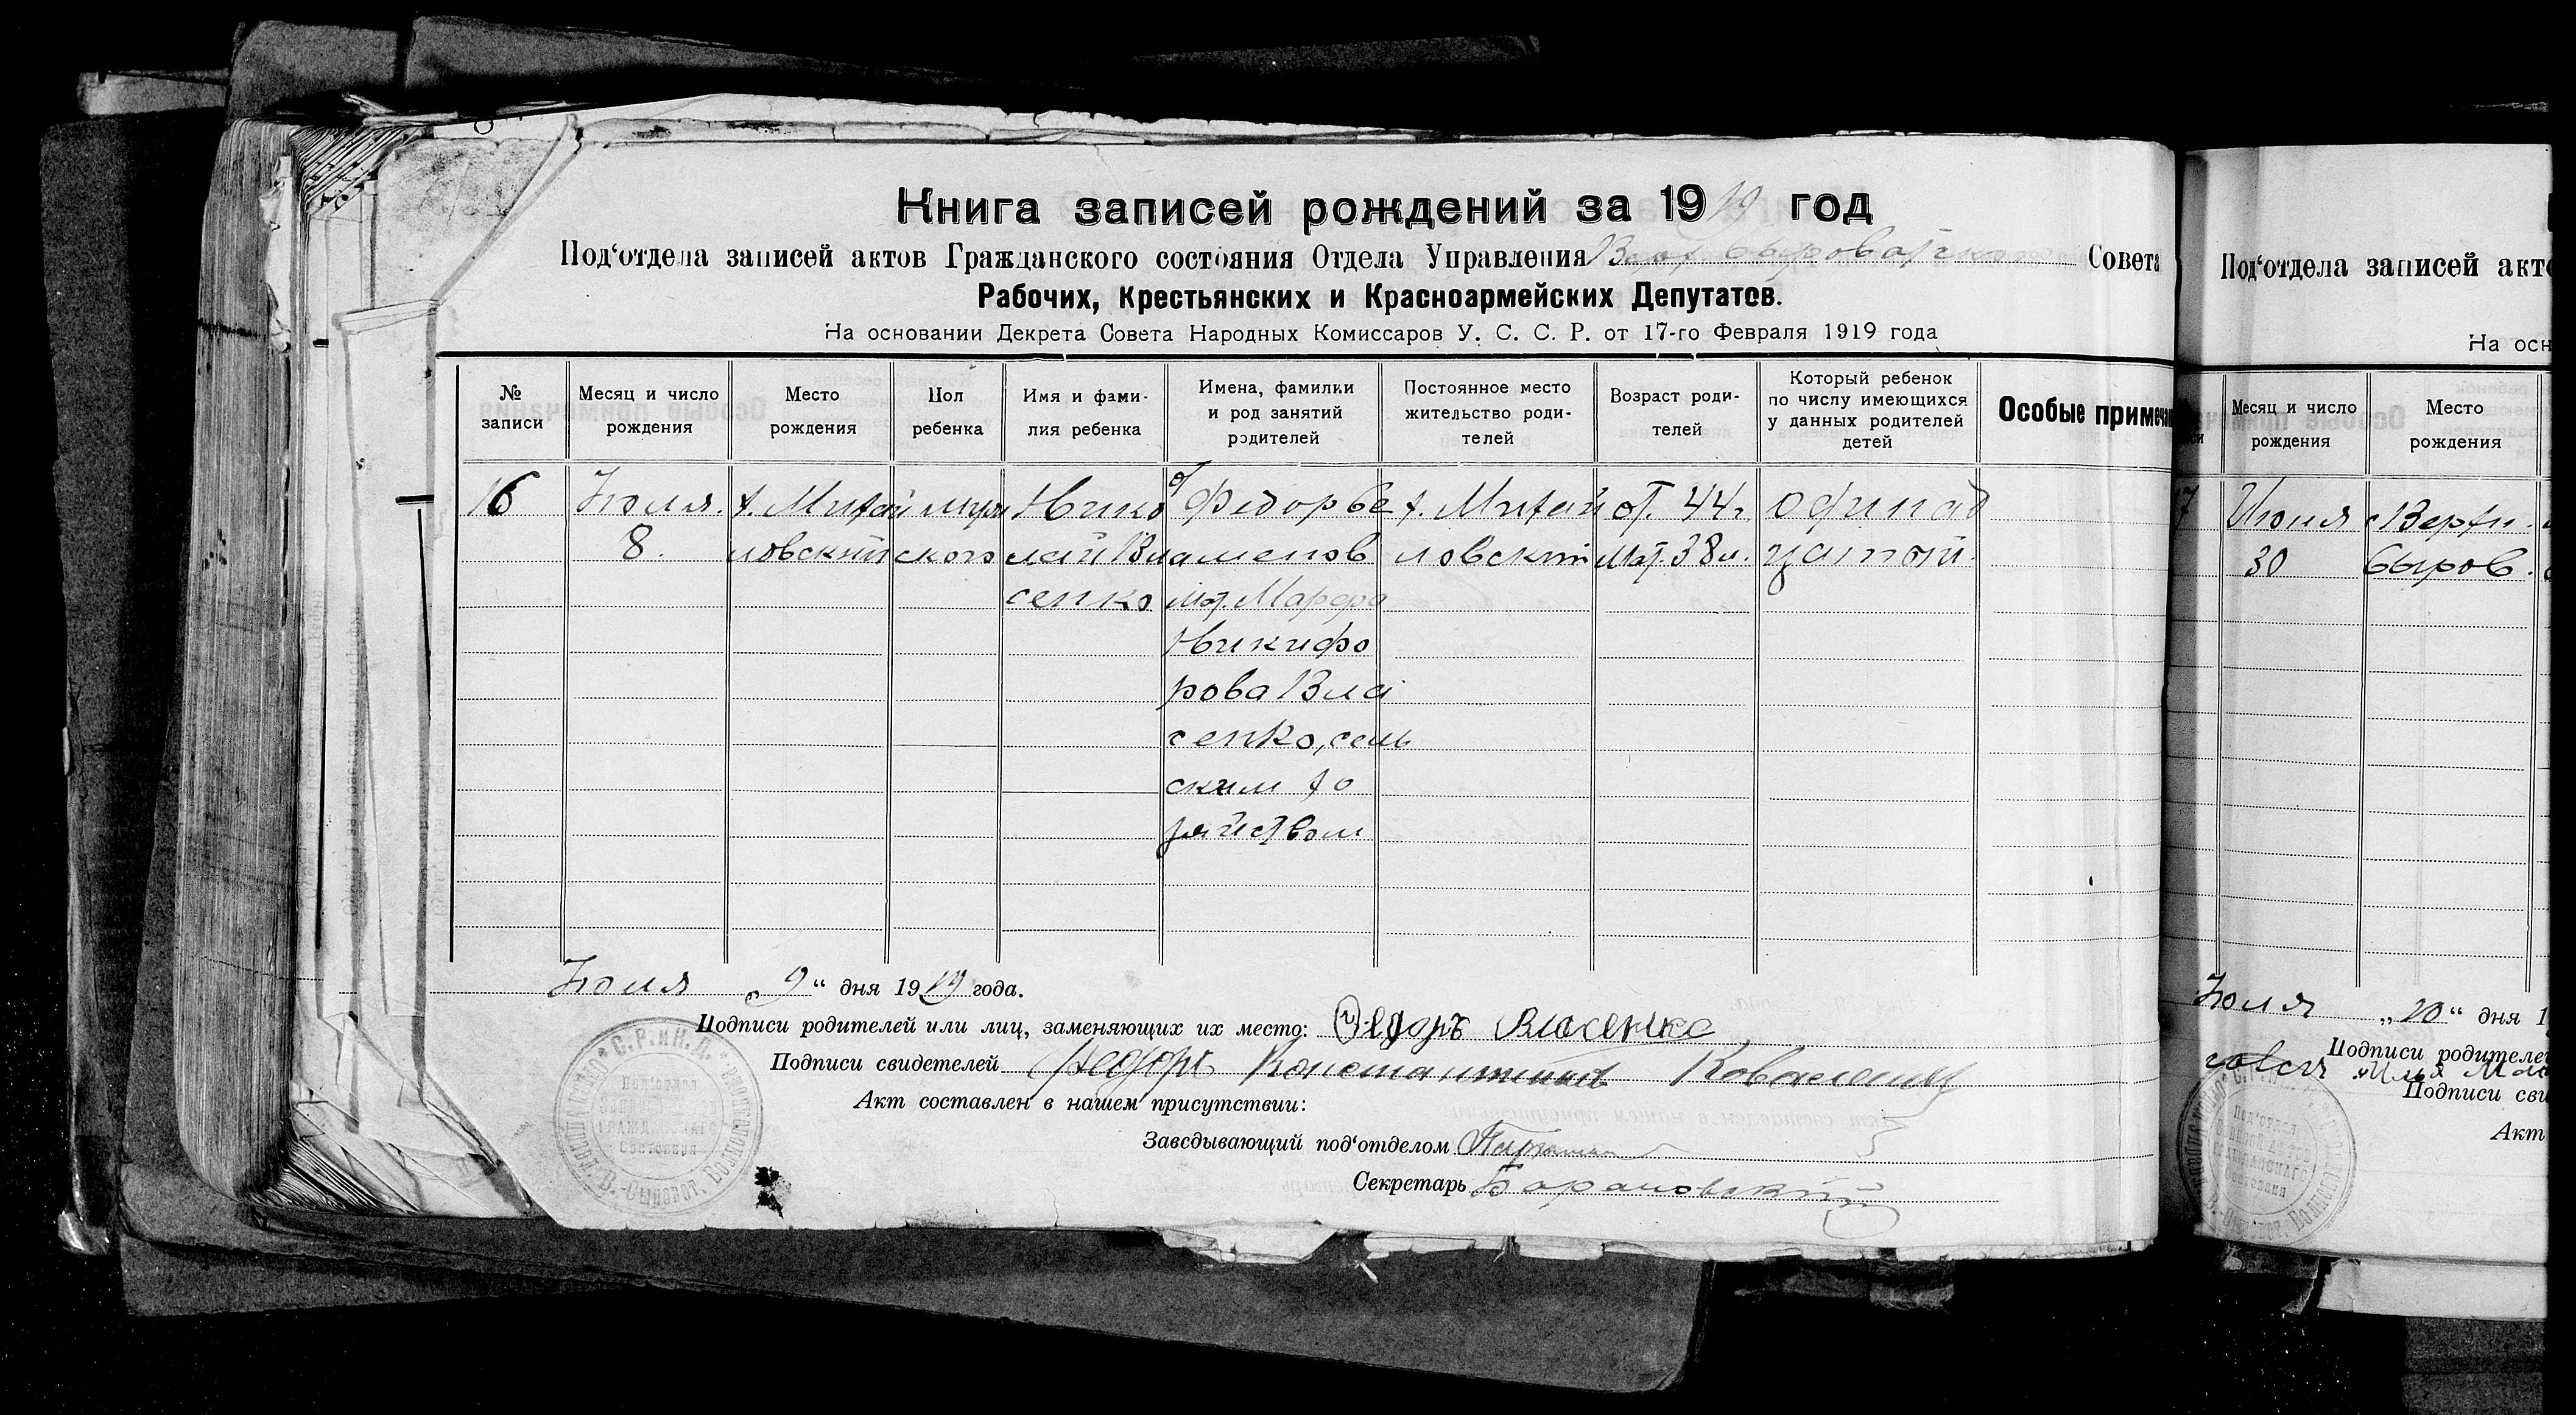 Книга записей рождений за 1919 год
Под‘отдела записей актов Гражданского состояния Отдела Управления Совета
Рабочих, Крестьянских и Красноармейских Депутатов.
На основании Декрета Совета Народных Комиссаров У. С. С. Р. от 17-го Февраля 1919 года
№ записи
Месяц и число рождения
Место рождения
Пол ребенка
Имя и фами-
лия ребенка
Имена, фамилии
и род занятий
родителей
Постоянное место
жительство роди-
телей
Возраст роди-
телей
Который ребенок
по числу имеющихся
у данных родителей
детей
Особые примеча
16
Июля.
8.
х. Михай
ловский
муж
ского
Нико
лай Вла
сенко
от Федор Се
аменов
мат. Марфа
Никифо
рова Вла
сенко, сель
ским хо
зяйством
х. Михай
ловский
от. 44 г.
мат. 38 л.
одинад
цатой.
Июля „9“ дня 1919 года.
Подписи родителей или лиц, заменяющих их место: Федоръ Власенко
Подписи свидетелей Федоръ Константинов Коваленко
Акт составлен в нашем присутствии:
Заведывающий под‘отделом
Секретарь Барановский
Под‘отдела записей акт
На осн
Месяц и число
рождения
Место
рождения
17
Июня
30
с Верхн.
Сыров.
Июля „20“ дня 1
Подписи родителе
Подписи сви
Акт